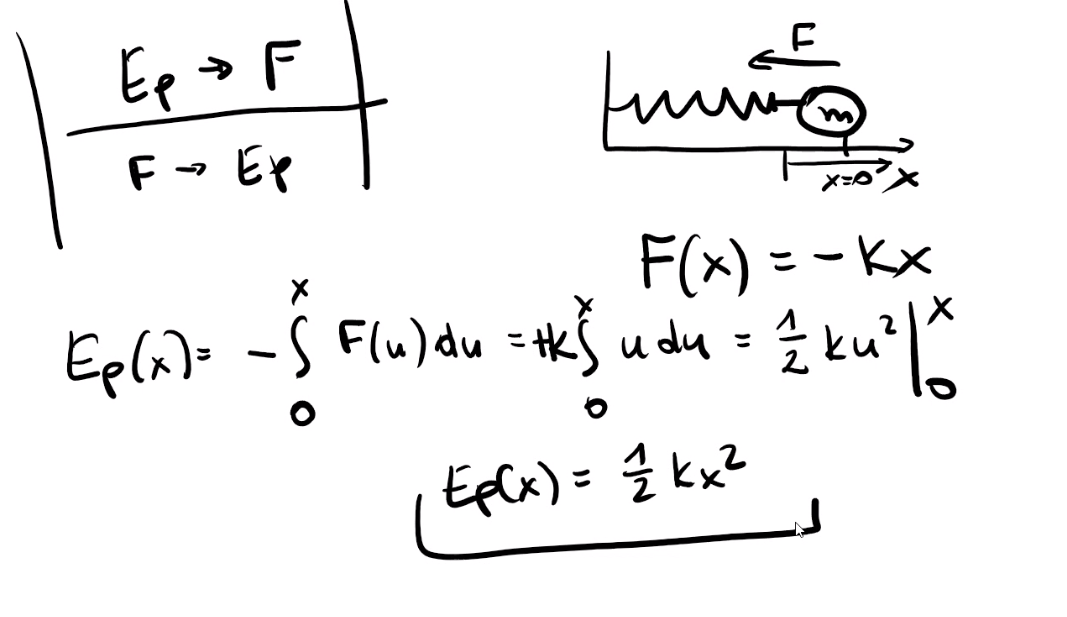 Ep → F
F → Ep
F
m
x=0 x
F(x) = -kx
Ep(x) = -∫₀ˣ F(u)du = +k∫₀ˣ u du = 1/2 ku² |₀ˣ
Ep(x) = 1/2 kx²